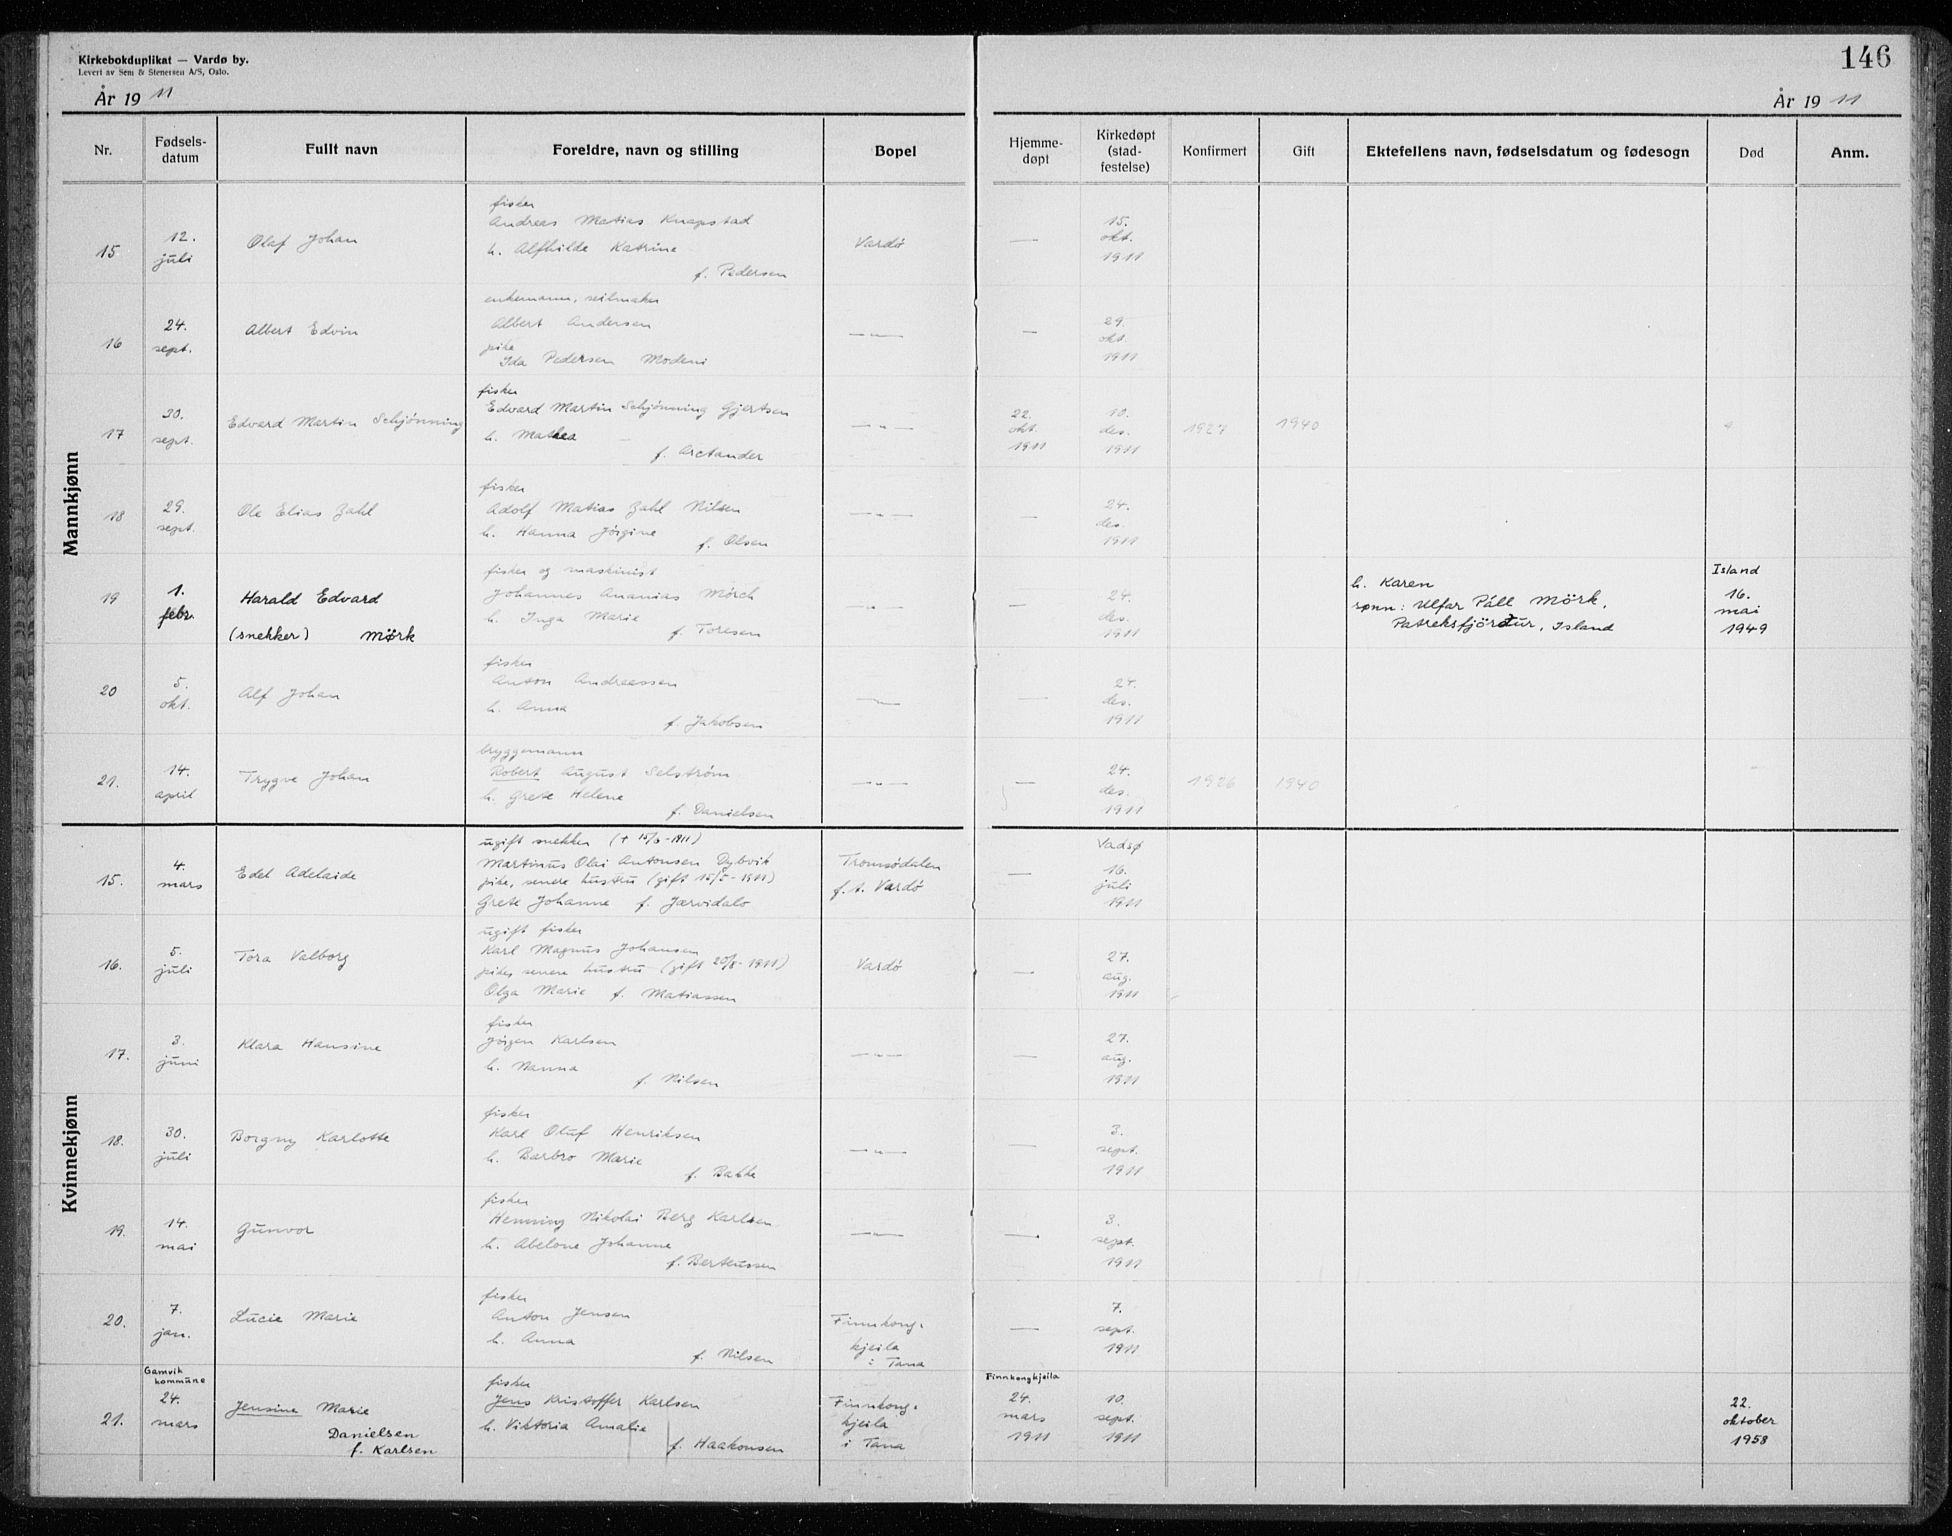 Kirkebokduplikat — Vardø by.
Levert av Sem & Stenersen A/S, Oslo.
146
År 19 11
År 19 11
Nr.
Fødsels-
datum
Fullt navn
Foreldre, navn og stilling
Bopel
Hjemme-
døpt
Kirkedøpt
(stad-
festelse)
Konfirmert
Gift
Ektefellens navn, fødselsdatum og fødesogn
Død
Anm.
Mannkjønn
15
12.
juli
Olaf Johan
fisker
Andreas Matias Knapstad
h. Alfhilde Katrine
f. Pedersen
Vardø
—
15.
okt.
1911
16
24.
sept.
Albert Edvin
enkemann, seilmaker
Albert Andersen
pike
Ida Pedersen Modeni
—"—
—
29.
okt.
1911
17
30.
sept.
Edvard Martin Schjønning
fisker
Edvard Martin Schjønning Gjertsen
h. Mathea
f. Arctander
—"—
22.
okt.
1911
10.
des.
1911
1927
1940
18
29.
sept.
Ole Elias Zahl
fisker
Adolf Matias Zahl Nilsen
h. Hanna Jørgine
f. Olsen
—"—
—
24.
des.
1911
19
1.
febr.
Harald Edvard
(snekker) Mørk
fisker og maskinist
Johannes Ananias Mørch
h. Inga Marie
f. Toresen
—"—
—
24.
des.
1911
h. Karen
sønn: Ulfar Páll Mörk,
Patreksfjörður, Island
Island
16.
mai
1949
20
5.
okt.
Alf Johan
fisker
Anton Andreassen
h. Anna
f. Jakobsen
—"—
—
24.
des.
1911
21.
14.
april
Trygve Johan
bryggemann
Robert August Selstrøm
h. Grete Helene
f. Danielsen
—"—
—
24.
des.
1911
1926
1940
Kvinnekjønn
15.
4.
mars
Edel Adelaide
ugift snekker (+ 15/6-1911)
Martinus Olai Antonsen Dybvik
pike, senere hustru (gift 15/5-1911)
Grete Johanne f. Jærvidalo
Tromsødalen
f. t. Vardø
—
Vadsø
16.
juli
1911
16.
5.
juli
Tora Valborg
ugift fisker
Karl Magnus Johansen
pike, senere hustru (gift 20/8-1911)
Olga Marie f. Matiassen
Vardø
—
27.
aug.
1911
17.
3.
juni
Klara Hansine
fisker
Jørgen Karlsen
h. Nanna
f. Nilsen
—"—
—
27.
aug.
1911
18.
30.
juli
Borgny Karlotte
fisker
Karl Oluf Henriksen
h. Barbro Marie
f. Bakke
—"—
—
3.
sept.
1911
19.
14.
mai
Gunvor
fisker
Henning Nikolai Berg Karlsen
h. Abelone Johanne
f. Berteussen
—"—
—
3.
sept.
1911
20.
7.
jan.
Lucie Marie
fisker
Anton Jensen
h. Anna
f. Nilsen
Finnkong-
kjeila
i Tana
—
7.
sept.
1911
21.
Gamvik
kommune
24.
mars
Jensine Marie
Danielsen
f. Karlsen
fisker
Jens Kristoffer Karlsen
h. Viktoria Amalie
f. Haakonsen
Finnkong-
kjeila
i Tana
Finnkongkjeila
24.
mars
1911
10.
sept.
1911
22.
oktober
1958